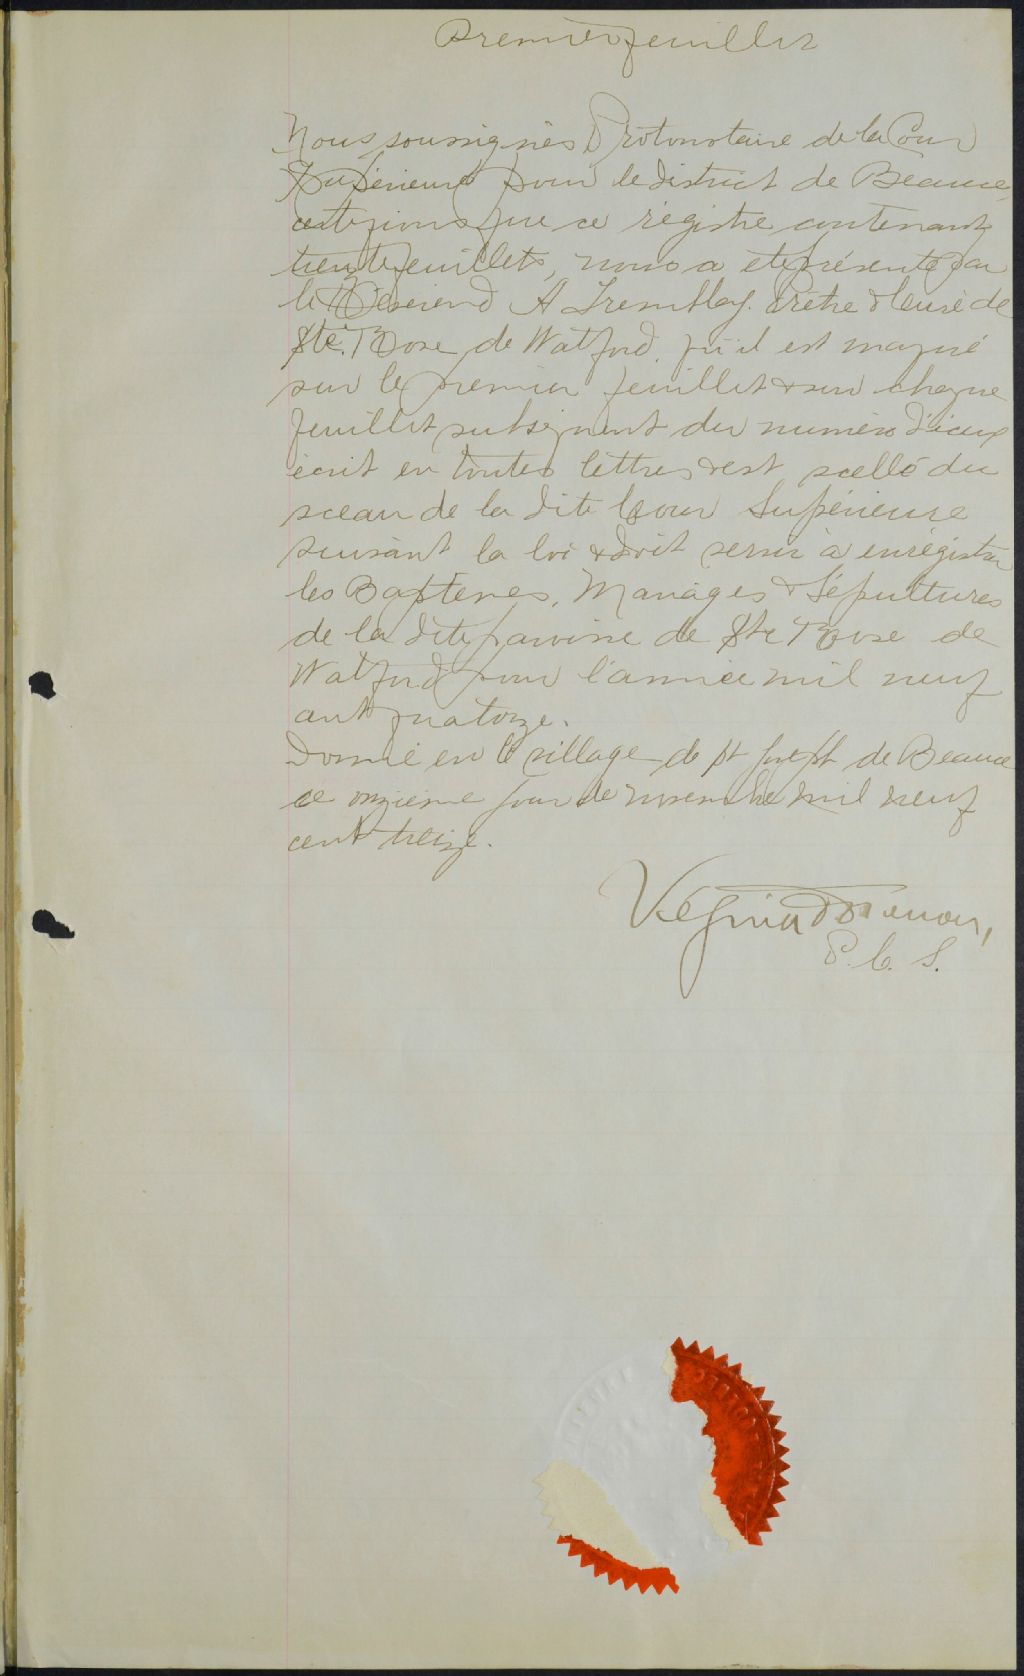 Premier feuillet
Nous soussignés Protonotaire de la Cour
Supérieure pour le district de Beauce,
certifions que ce régistre contenant
trente feuillets, nous a été présenté par
le Révérend A Tremblay. Prêtre & Curé de
Ste. Rose de Watford. qu'il est marqué
sur le premier feuillet & sur chaque
feuillet subséquent du numéro d'iceux
écrit en toutes lettres & est scellé du
sceau de la dite Cour Supérieure
suivant la loi & doit servir à enrégistrer
les Baptêmes, Mariages & Sépultures
de la dite paroisse de Ste Rose de
Watford pour l'année mil neuf
cent quatorze.
Donné en le village de St Joseph de Beauce
ce onzième jour de novembre mil neuf
cent treize.
P. C. S.